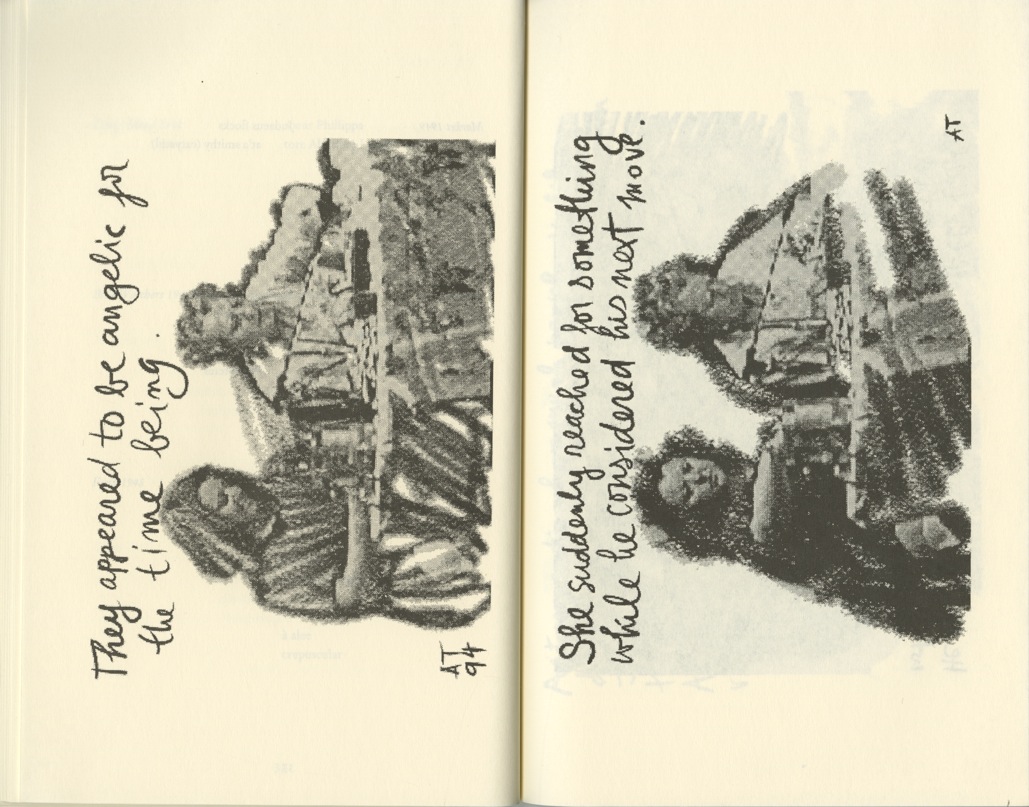 They appeared to be angelic for
the time being.
AT
94
She suddenly reached for something
while he considered his next move.
AT